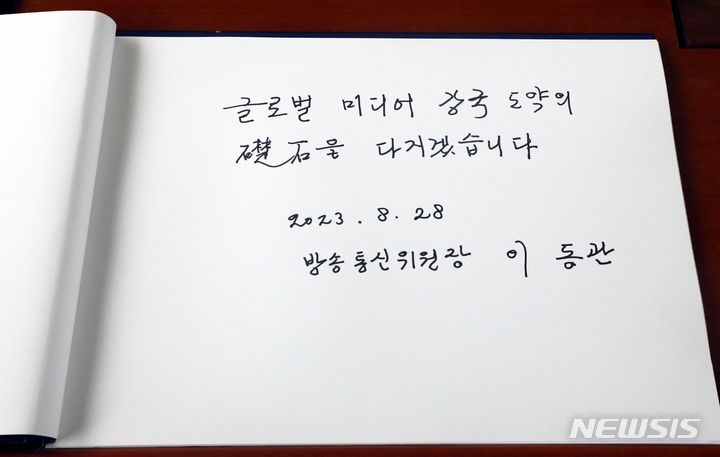 글로벌 미디어 강국 도약의
礎石을 다지겠습니다
2023.8.28
방송통신위원장 이동관
NEWSIS